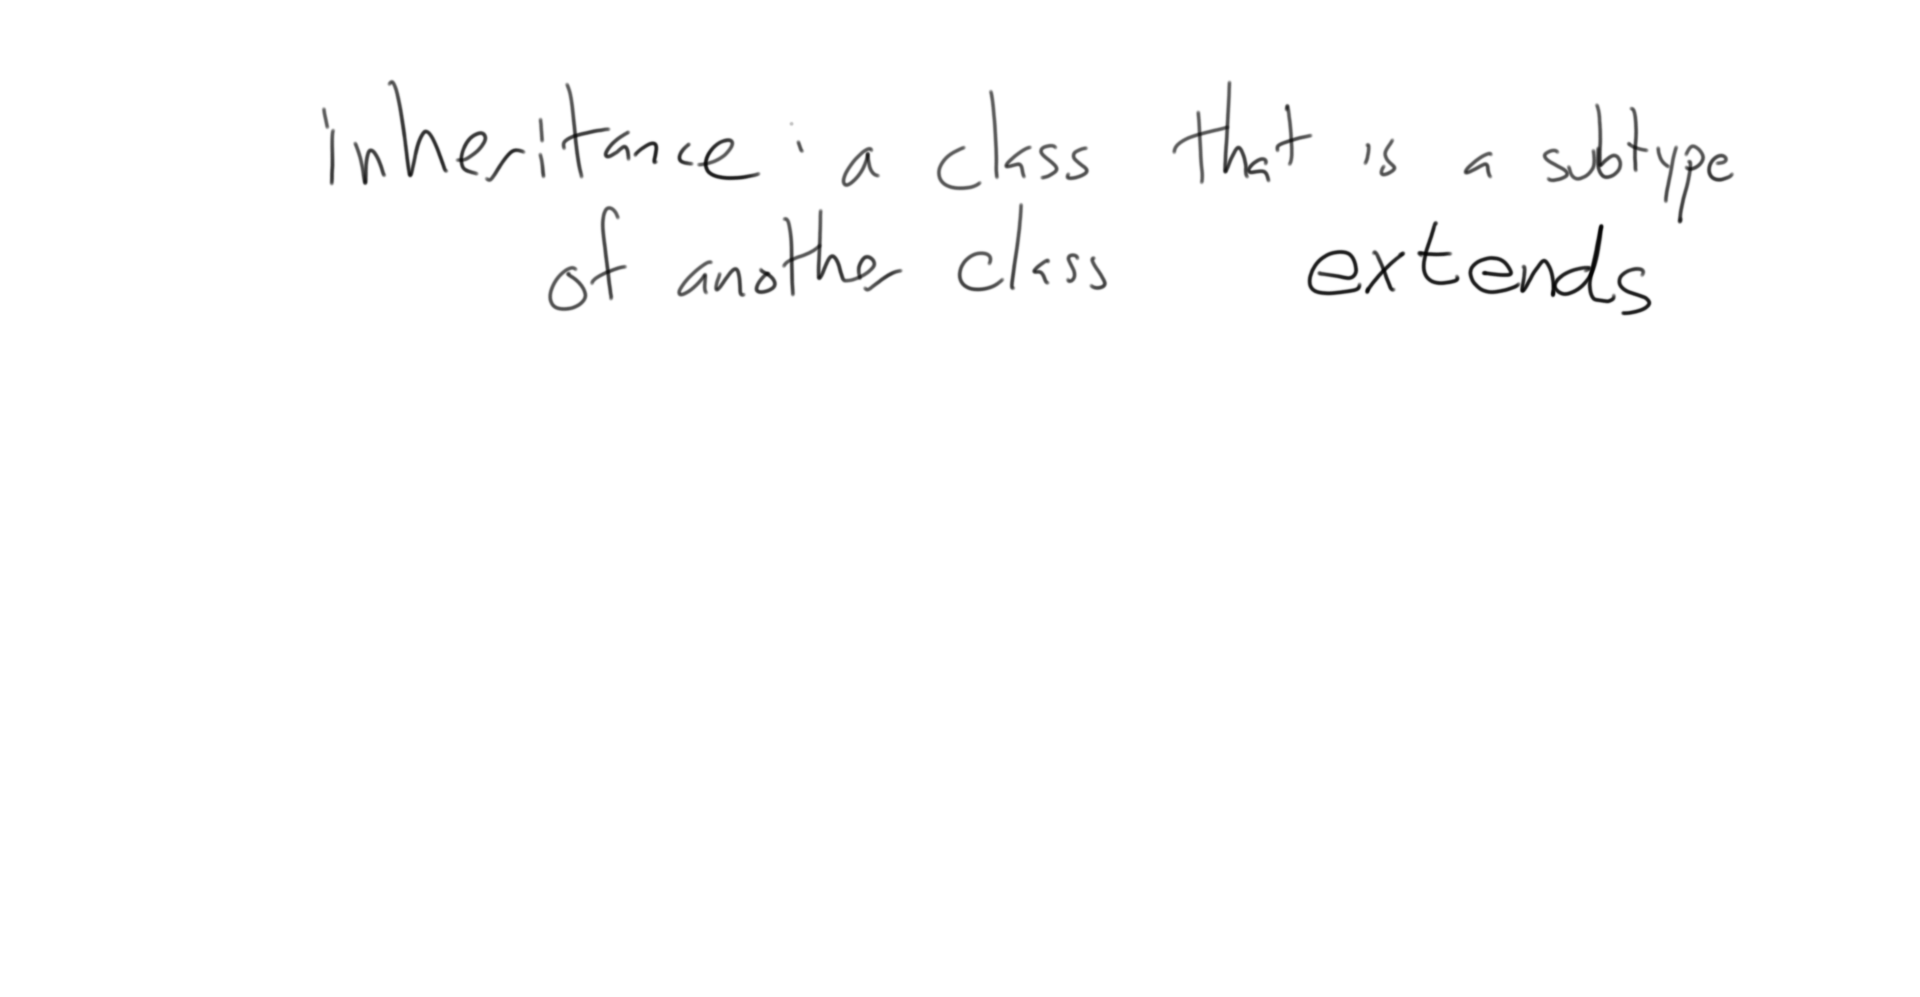 inheritance : a class that is a subtype
of another class extends